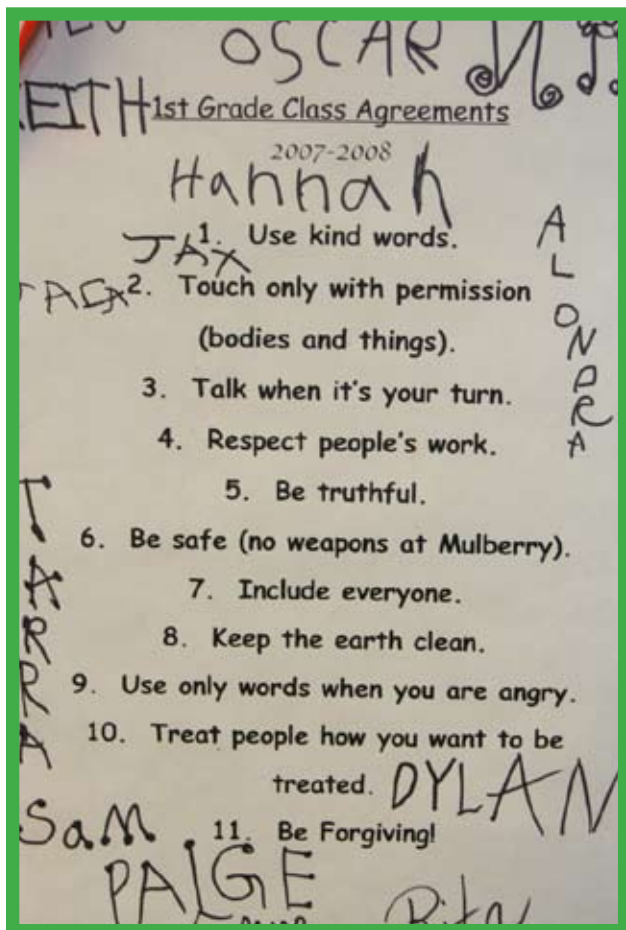 OSCAR
KEITH
1st Grade Class Agreements
2007-2008
Hannah
1. Use kind words.
JAX
2. Touch only with permission
(bodies and things).
ALONDRA
3. Talk when it's your turn.
4. Respect people's work.
5. Be truthful.
6. Be safe (no weapons at Mulberry).
7. Include everyone.
8. Keep the earth clean.
TARRA
9. Use only words when you are angry.
10. Treat people how you want to be
treated.
DYLAN
11. Be Forgiving!
SaM
PAIGE
Rita